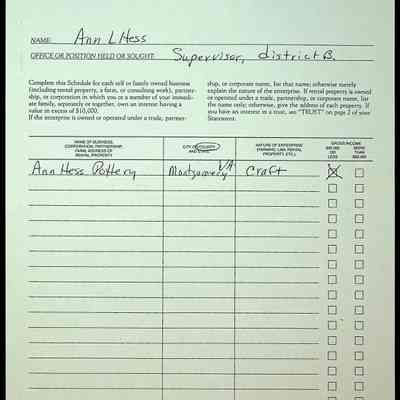 NAME: Ann L Hess
OFFICE OR POSITION HELD OR SOUGHT: Supervisor, district B.
Complete this Schedule for each self or family owned business
(including rental property, a farm, or consulting work), partner-
ship, or corporation in which you or a member of your immedi-
ate family, separately or together, own an interest having a
value in excess of $10,000.
If the enterprise is owned or operated under a trade, partner-
ship, or corporate name, list that name; otherwise merely
explain the nature of the enterprise. If rental property is owned
or operated under a trade, partnership, or corporate name, list
the name only; otherwise, give the address of each property. If
you have an interest in a trust, see "TRUST" on page 2 of your
Statement.
NAME OF BUSINESS,
CORPORATION, PARTNERSHIP,
FARM, ADDRESS OF
RENTAL PROPERTY
CITY OR COUNTY
AND STATE
NATURE OF ENTERPRISE
(FARMING, LAW, RENTAL
PROPERTY, ETC.)
GROSS INCOME
$50,000
OR
LESS
MORE
THAN
$50,000
Ann Hess Pottery
Montgomery VA
Craft